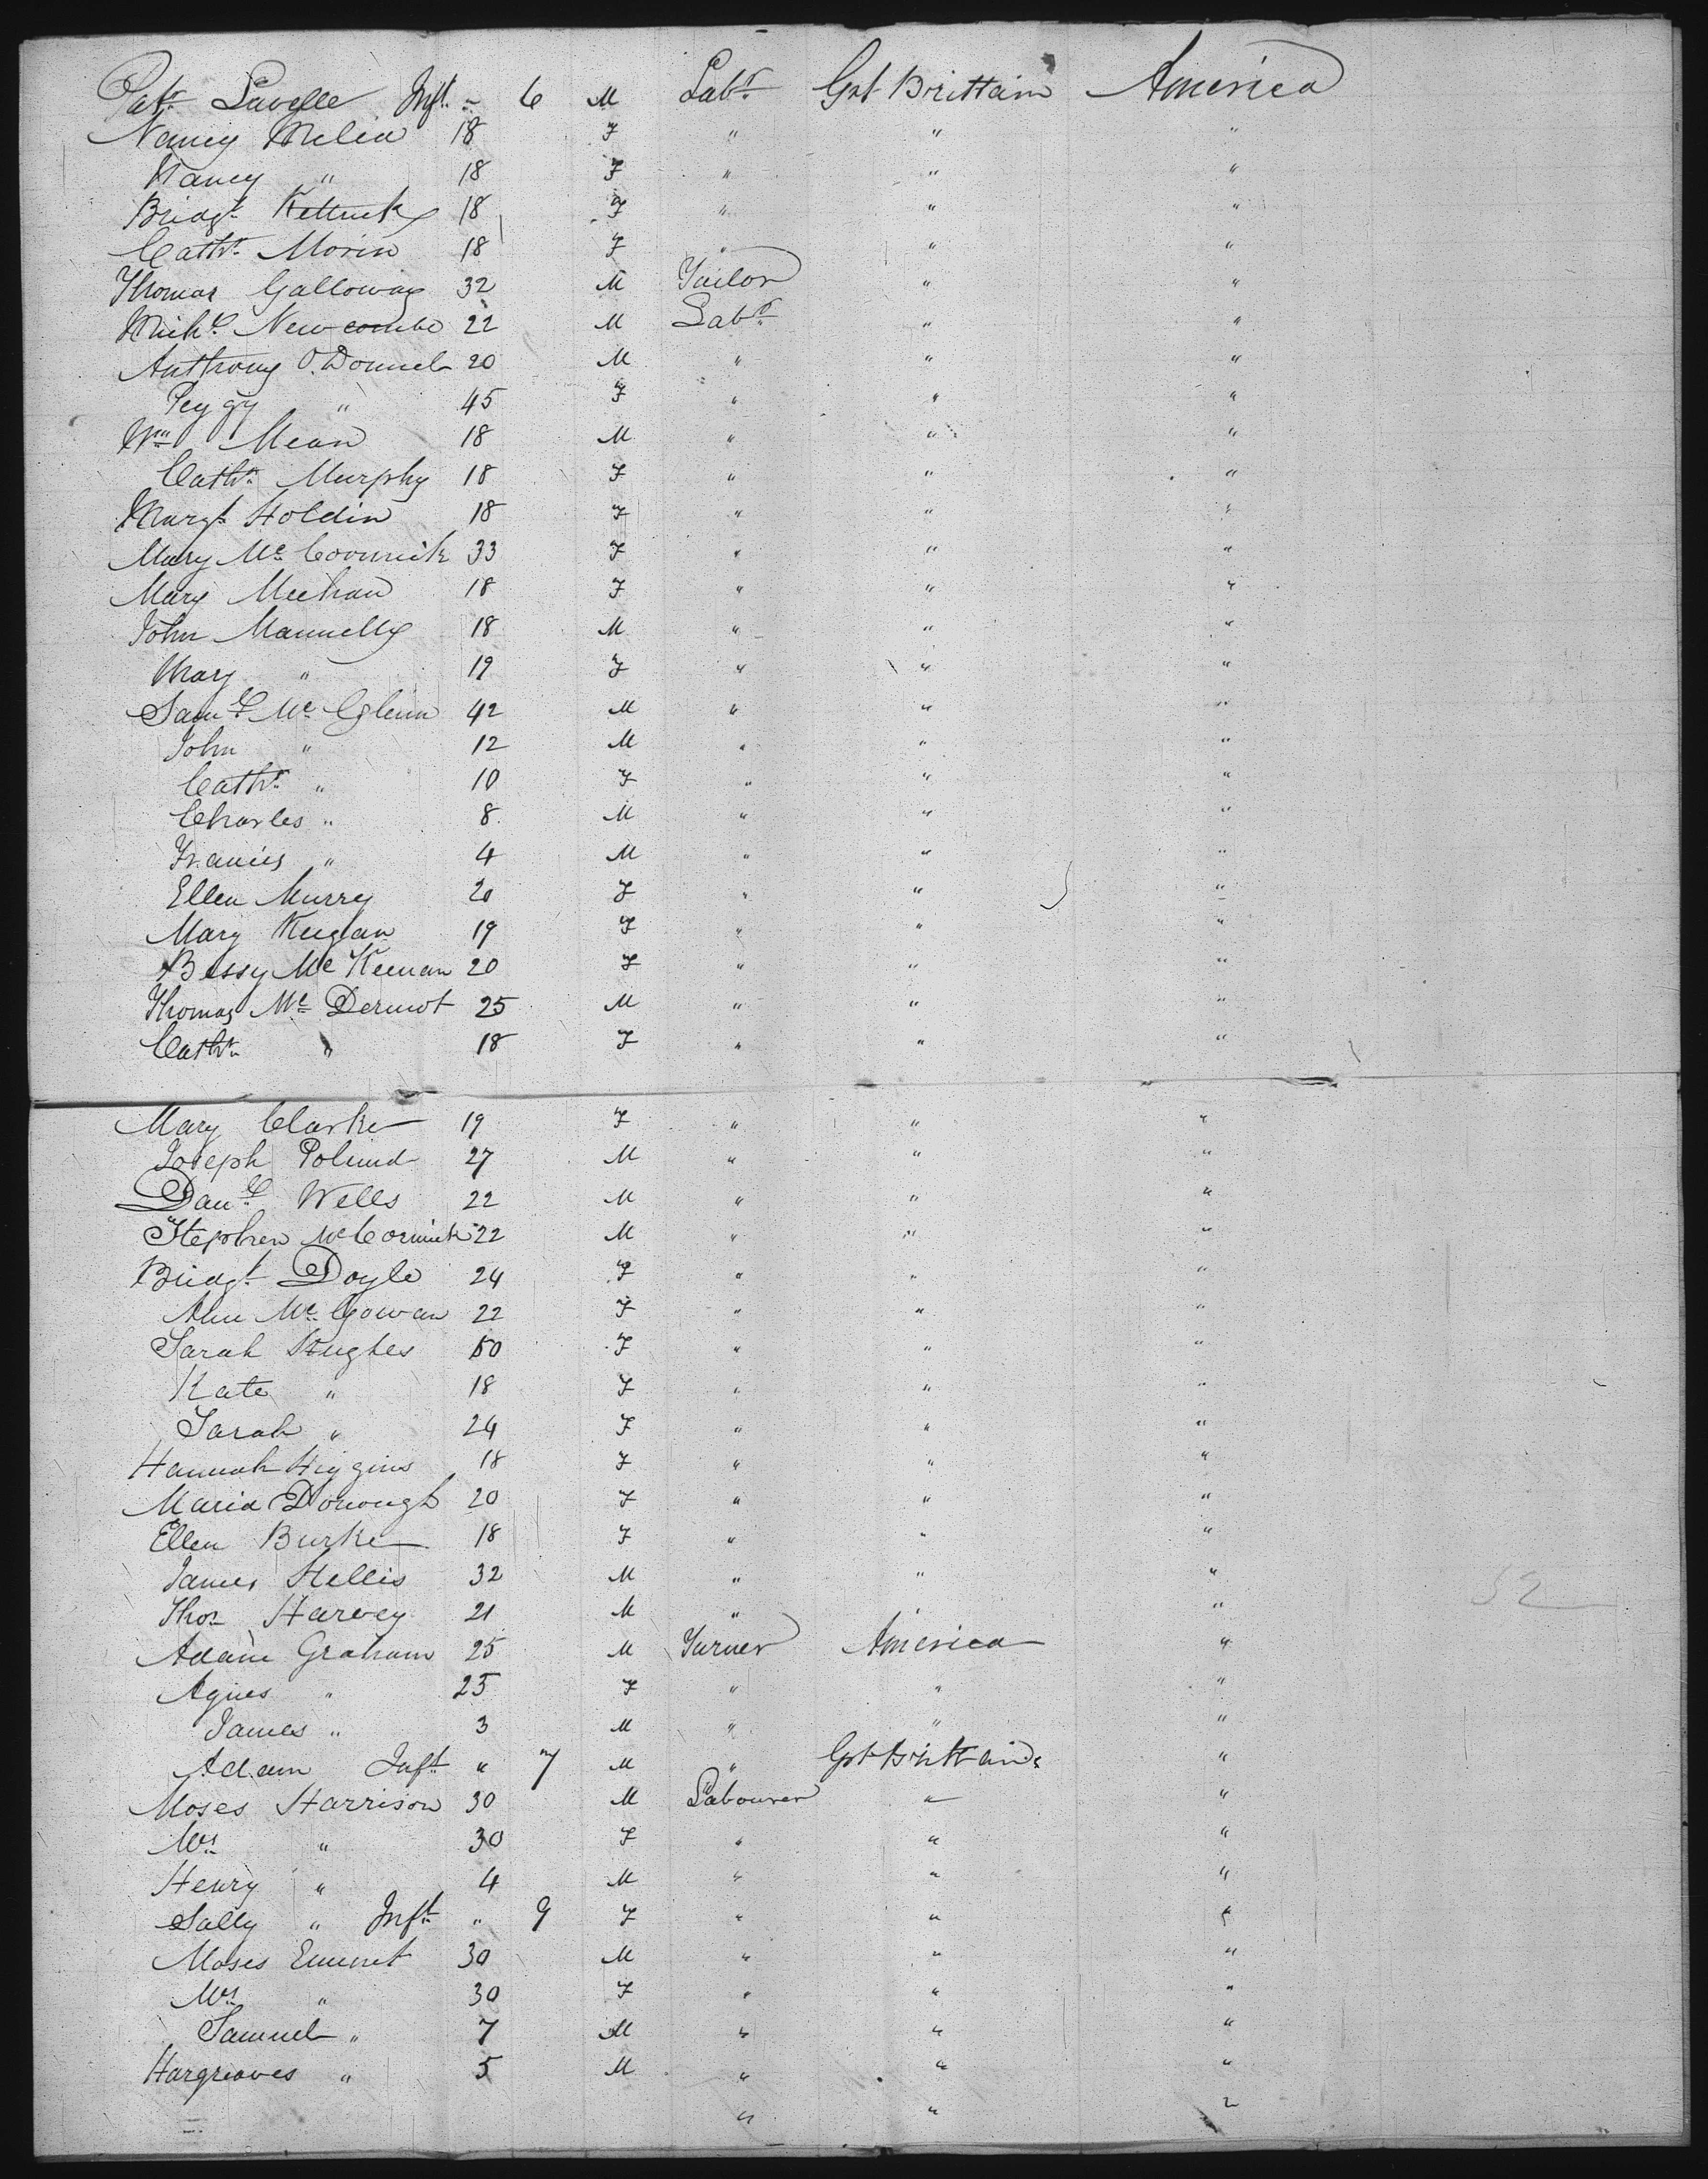 Patk Lavelle Inft " 6 M Labr Gt Brittain America
Nancy Melia 18 F " " "
Nancy " 18 F " " "
Bridgt Kettrick 18 F " " "
Cathr Morin 18 F " " "
Thomas Galloway 32 M Tailor " "
Michl Newcombe 22 M Labr " "
Anthony O'Donnel 20 M " " "
Peggy " 45 F " " "
Wm Mean 18 M " " "
Cathr Murphy 18 F " " "
Margt Holdin 18 F " " "
Mary Mc Cormick 33 F " " "
Mary Meehan 18 F " " "
John Mannelly 18 M " " "
Mary " 19 F " " "
Saml Mc Glenn 42 M " " "
John " 12 M " " "
Cathr " 10 F " " "
Charles " 8 M " " "
Francis " 4 M " " "
Ellen Murry 20 F " " "
Mary Keegan 19 F " " "
Bessy Mc Keenan 20 F " " "
Thomas Mc Dermot 25 M " " "
Cathr " 18 F " " "
Mary Clarke 19 F " " "
Joseph Polund 27 M " " "
Danl Wells 22 M " " "
Stephen McCormick 22 M " " "
Bridgt Doyle 24 F " " "
Ann Mc Gowan 22 F " " "
Sarah Hughes 50 F " " "
Kate " 18 F " " "
Sarah " 24 F " " "
Hannah Higgins 18 F " " "
Maria Donough 20 F " " "
Ellen Burke 18 F " " "
James Hellis 32 M " " "
Thos Harvey 21 M " " "
52
Adam Graham 25 M Turner America "
Agnes " 25 F " " "
James " 3 M " " "
Adam Inft " 7 M " Gt Brittain "
Moses Harrison 30 M Labourer " "
Mrs " 30 F " " "
Henry " 4 M " " "
Sally " Inft " 9 F " " "
Moses Emmet 30 M " " "
Mrs " 30 F " " "
Samuel " 7 M " " "
Hargreaves " 5 M " " "
" " "